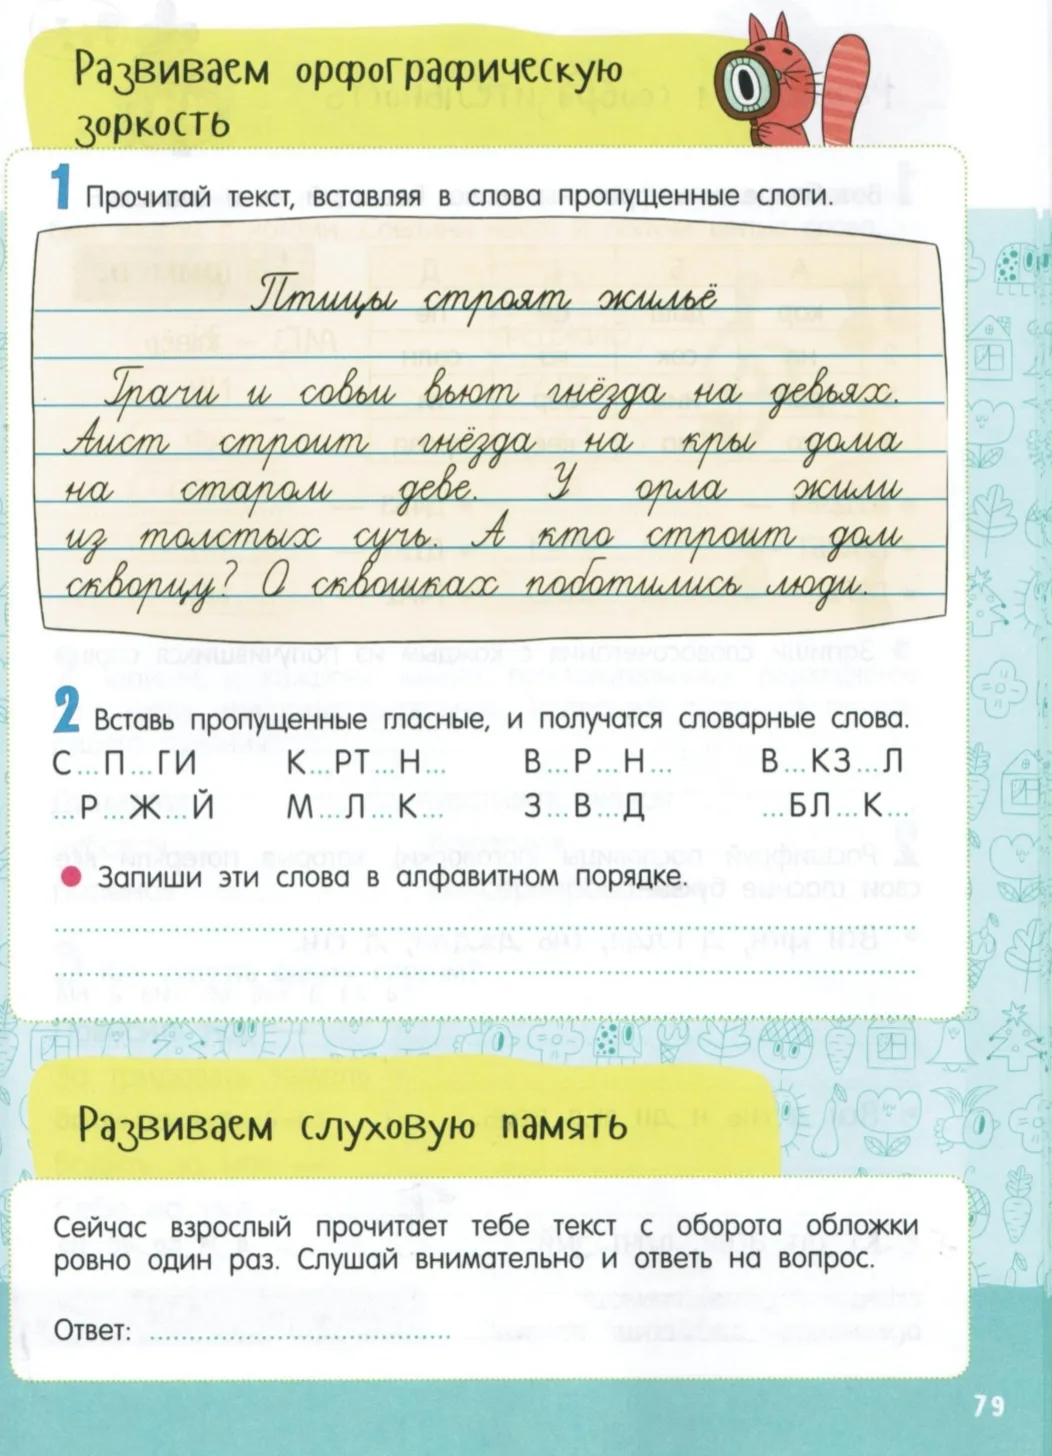 Развиваем орфографическую
зоркость
1 Прочитай текст, вставляя в слова пропущенные слоги.
Птицы строят жильё
Грачи и совы вьют гнёзда на девьях.
Аист строит гнёзда на кры дома
на старом деве. У орла жили
из толстых сучь. А кто строит дом
скворцу? О сквошках поботились люди.
2 Вставь пропущенные гласные, и получатся словарные слова.
С...П...ГИ К...РТ...Н... В...Р...Н... В...КЗ...Л
...Р...Ж...Й М...Л...К... З...В...Д ...БЛ...К...
● Запиши эти слова в алфавитном порядке.
Развиваем слуховую память
Сейчас взрослый прочитает тебе текст с оборота обложки
ровно один раз. Слушай внимательно и ответь на вопрос.
Ответ:
79